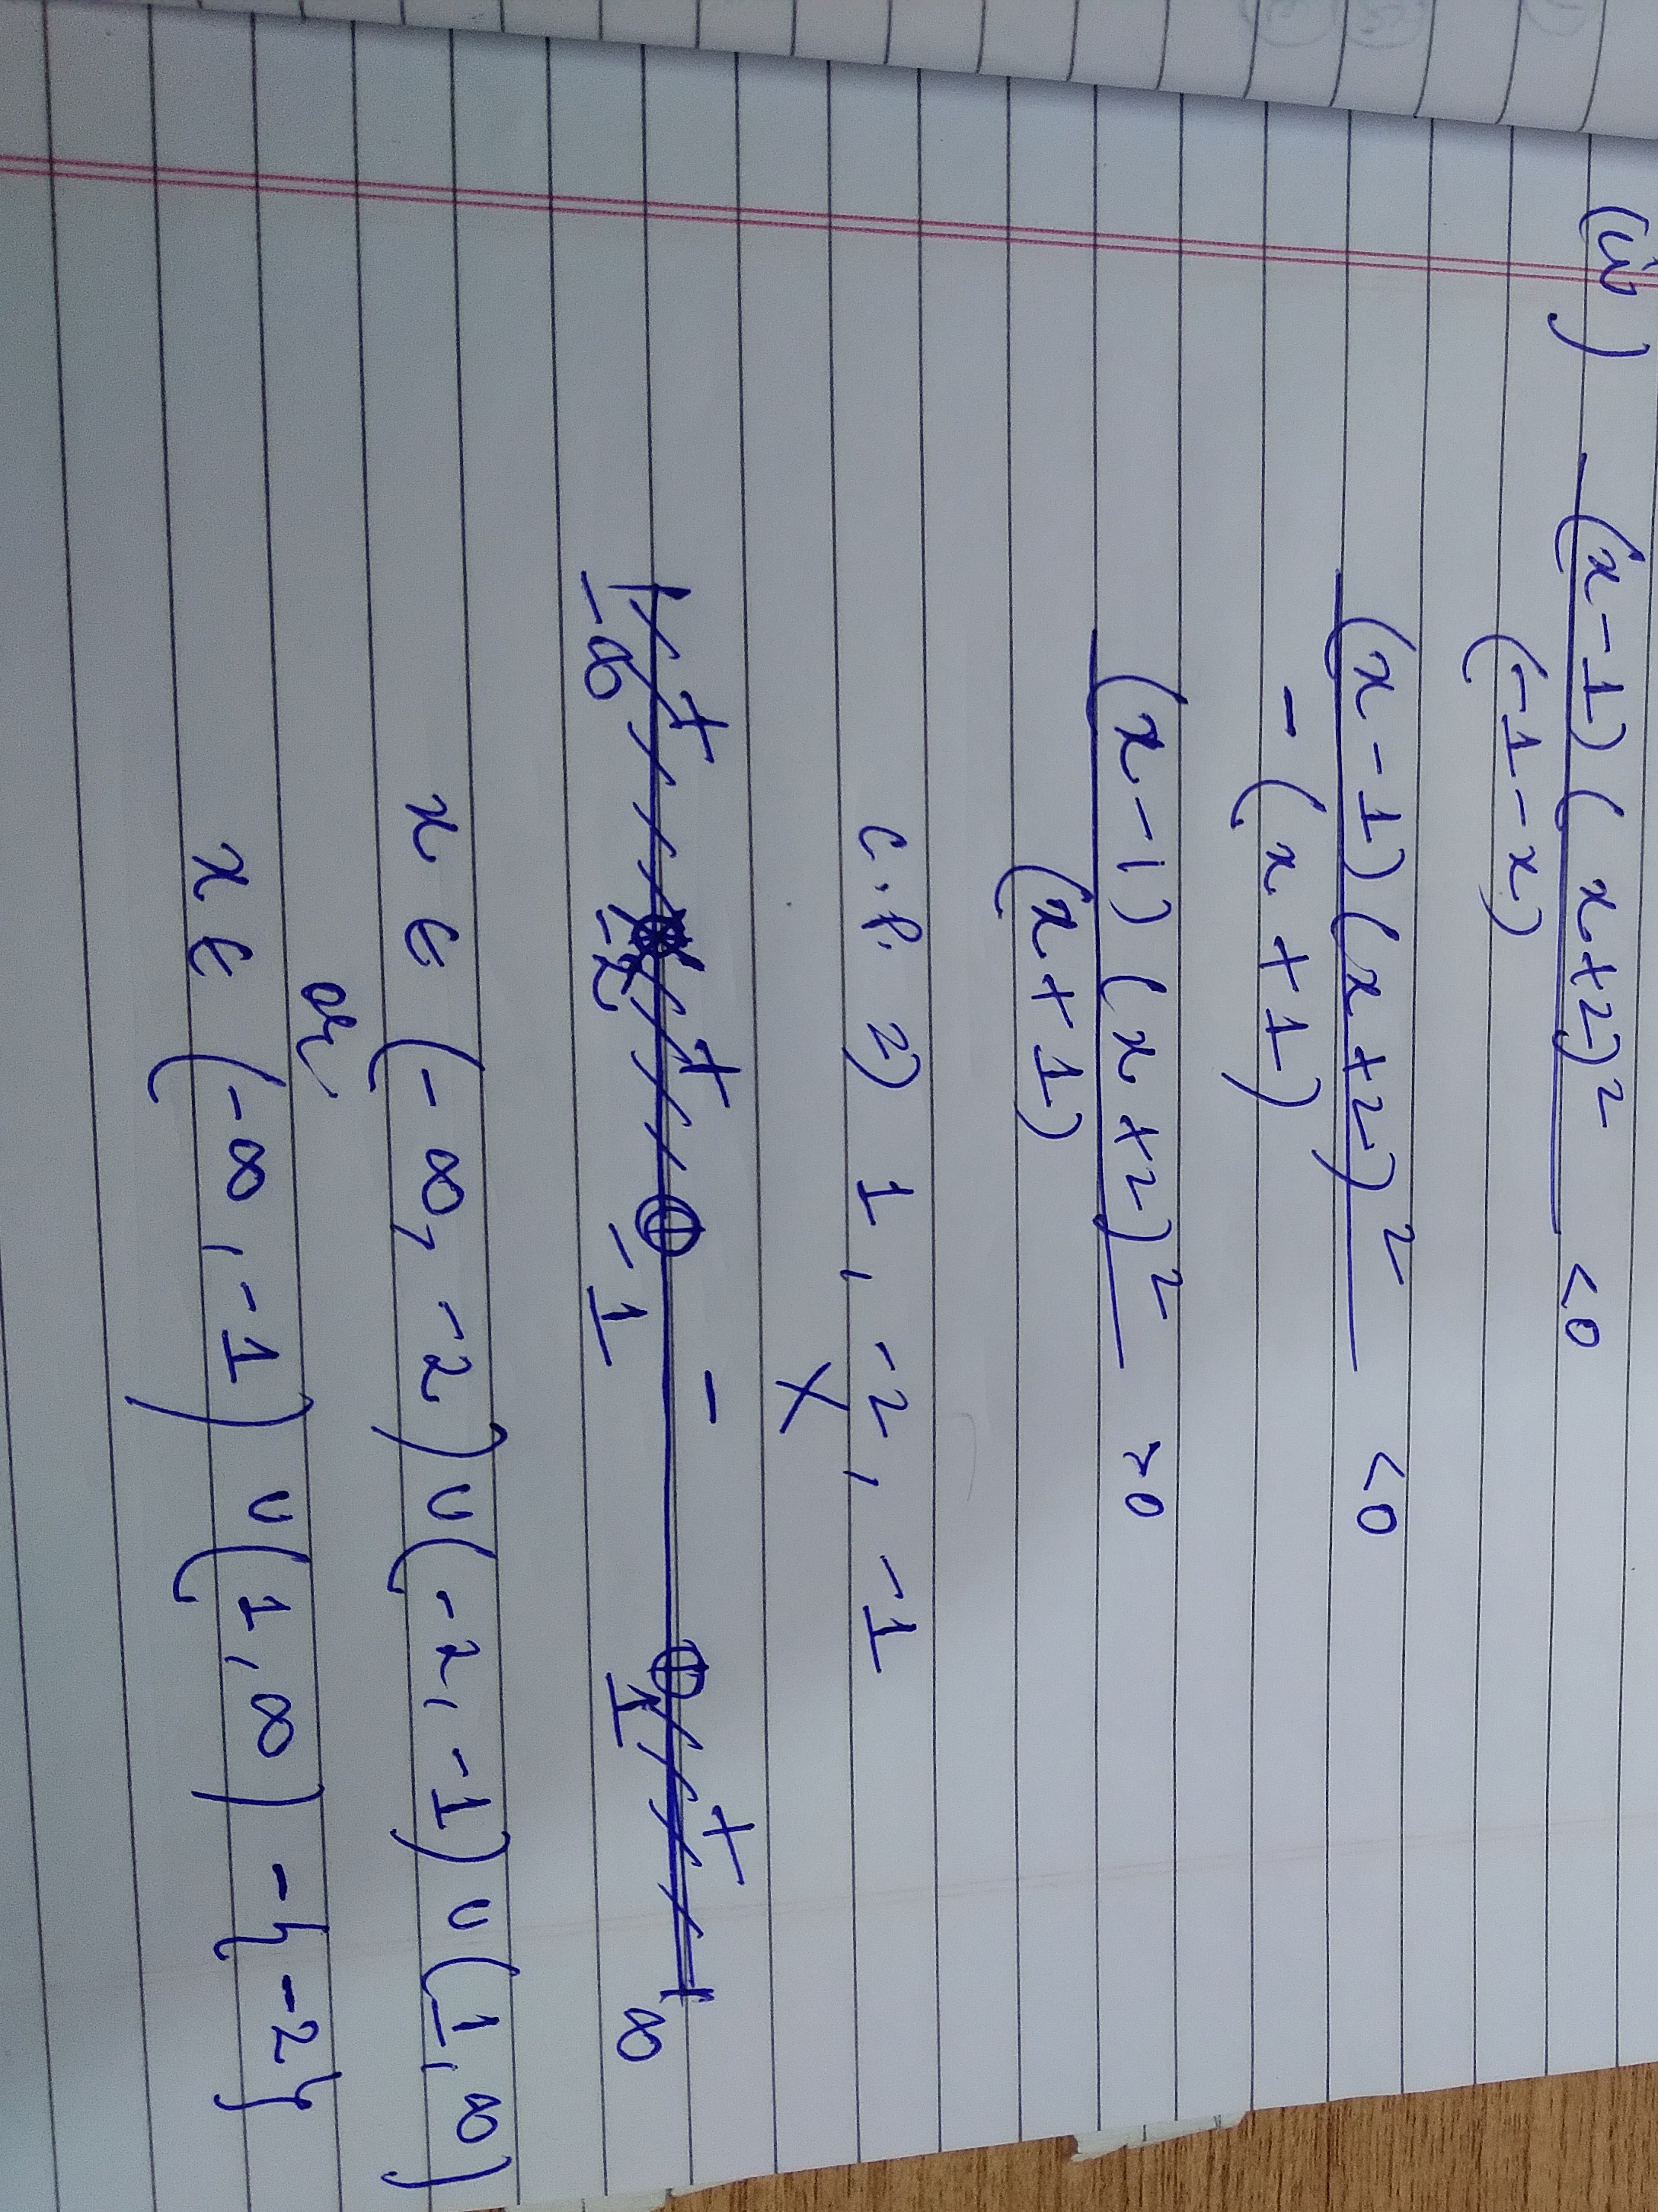 (iv) (x-1)(x+2)² <0
(-1-x)
(x-1)(x+2)² <0
-(x+1)
(x-1)(x+2)² >0
(x+1)
C.P. 2) 1, -2, -1
X
+ + - +
-∞ -2 -1 1 ∞
x ∈ (-∞, -2) ∪ (-2, -1) ∪ (1, ∞)
or
x ∈ (-∞, -1) ∪ (1, ∞) - {-2}